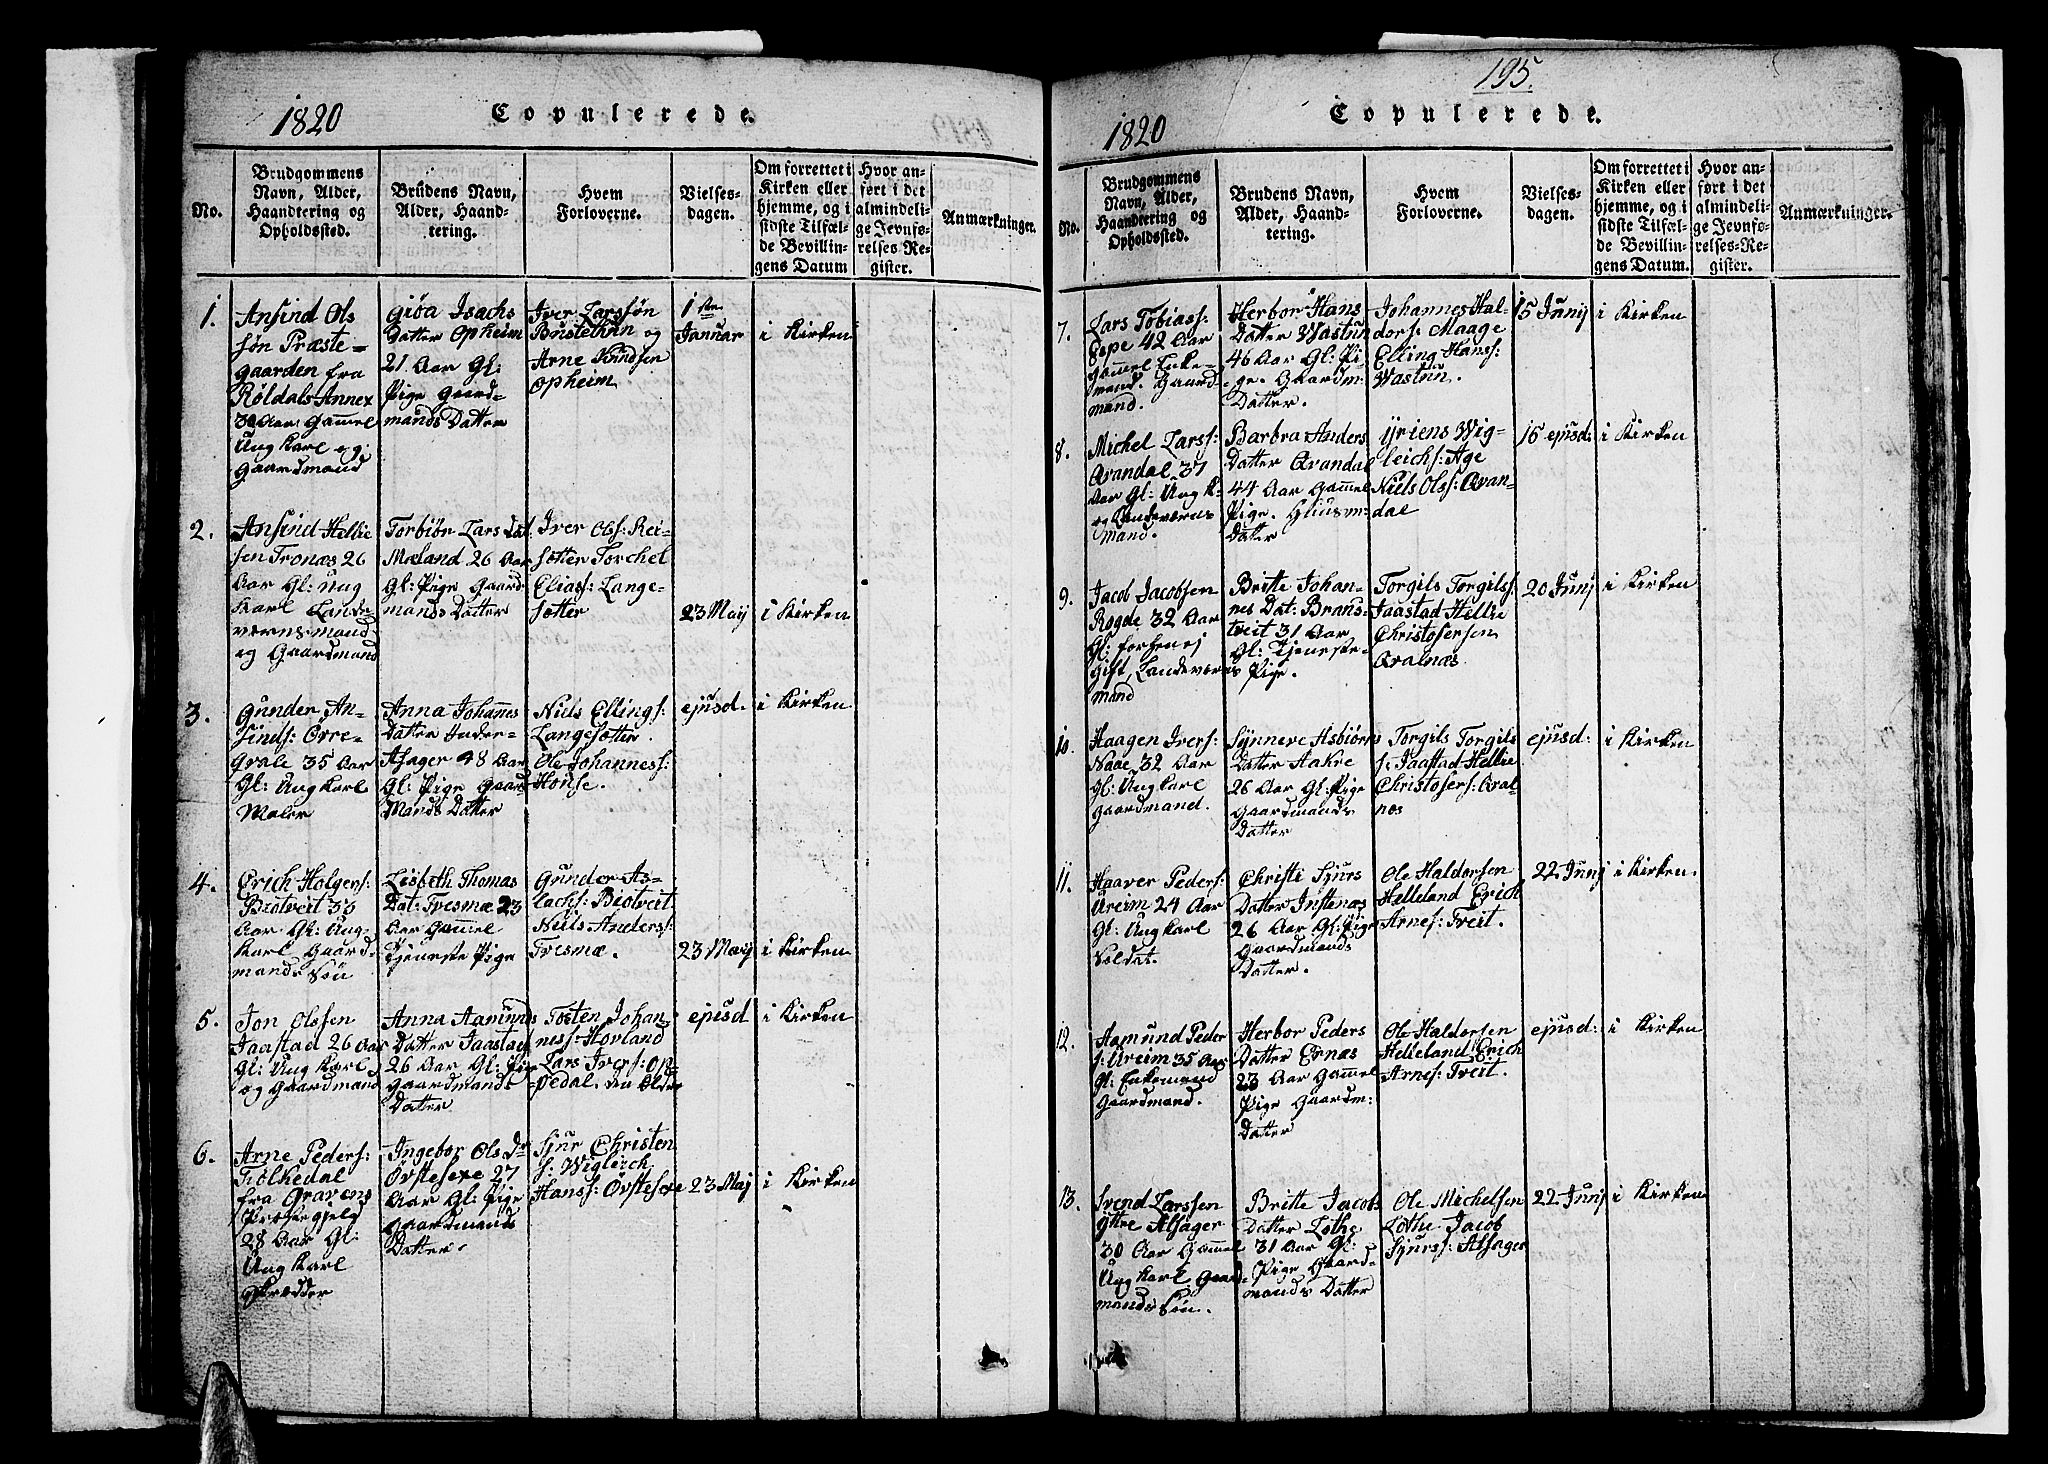 1820
Copulerede.
No.
Brudgommens
Navn, Alder,
Haandtering og
Opholdssted.
Brudens Navn,
Alder, Haand-
tering.
Hvem
Forloverne.
Vielses-
dagen.
Om forrettet i
Kirken eller
hjemme, og i
sidste Tilfæl-
de Bevillin-
gens Datum
Hvor an-
ført i det
almindeli-
ge Jevnfø-
relses-Re-
gister.
Anmærkninger.
1.
Ansind Ols
søn Præste-
gaarden fra
Røldals Annex
30 Aar Gammel
Ung Karl og
Gaardmand
Giøa Isachs
Datter Opheim
21 Aar Gl:
Pige Gaard-
mands Datter
Iver Larssøn
Bustethun og
Arne Knudsen
Opheim
1ste
Januar
i Kirken
2.
Ansind Hellie
sen Tronæs 26
Aar Gl: Ung
Karl Lande
værns mand
og Gaardmand
Torbiør Lars Dat
Mæland 26 Aar
Gl: Pige Gaard
mands Datter
Iver Ols: Rei-
sæter Torchel
Elias: Lange-
sætter
23 May
i Kirken
3.
Gunder An-
sinds: Orre-
grale 35 Aar
Gl: Ung Karl
Maler
Anna Johannes
Datter Inder-
Alsager 48 Aar
Gl: Pige Gaar
Mands Datter
Niels Ellings:
Langesætter.
Ole Johanness:
Honse.
ejusd.
i Kirken
4.
Erich Holgers:
Biotveit 33
Aar Gl: Ung
Karl Gaard
mands Søn
Lisbeth Thomas
Dat: Tvesmæ 23
Aar Gammel
Tjeneste Pige
Gunder As-
lachs: Biotveit
Niels Anders:
Tvesmæ.
23 May
i Kirken
5.
Jon Olssen
Jaastad 26 Aar
Gl: Ung Karl
og Gaardmand
Anna Aamunds
Datter Jaastad
26 Aar Gl: Pige
Gaardmands
Datter
Tosten Johan
ness: Hovland
Lars Ivers: Op-
pedal. den Older
ejusd
i Kirken
6.
Arne Peders:
Folkedal
fra Gravens
Præstegjeld
28 Aar Gl:
Ung Karl
Skrædder
Ingebor Ols Dr
Øvstesexe 27
Aar Gl: Pige
Gaardmands
Datter
Sjur Christen
s: Wigleich
Hanss: Øvstesexe
23 Maj
i Kirken
195.
1820
Copulerede.
No.
Brudgommens
Navn, Alder,
Haandtering og
Opholdssted.
Brudens Navn,
Alder, Haand-
tering.
Hvem
Forloverne.
Vielses-
dagen.
Om forrettet i
Kirken eller
hjemme, og i
sidste Tilfæl-
de Bevillin-
gens Datum.
Hvor an-
ført i det
almindeli-
ge Jevnfø-
relses-Re-
gister.
Anmærkninger.
7.
Lars Tobiass:
Espe 42 Aar
Gammel Enke-
mand. Gaard-
mand.
Herbor Hans
Datter Wastun
46 Aar Gl: Pi-
ge. Gaardm
Datter.
Johannes Hal-
dors: Maage
Elling Hanss:
Wastun.
15 Junij
i Kirken
8.
Michel Larss:
Qvandal 37
Aar Gl: Ung K.
og Landeværns
mand.
Barbra Anders
Datter Qvandal
44 Aar Gammel
Pige. Huusm-
Datter
Yriens Wig-
leichs: Age
Niels Olss: Qvan-
dal
16 ejusd:
i Kirken
9.
Jacob Jacobsen
Rogde 32 Aar
Gl: forhen ej
Gift, Landeværns
mand
Britte Johan-
nes Dat: Brans-
tveit 31 Aar
Gl: Tjeneste-
Pige.
Torgils Torgilss:
Jaastad Hellie
Christofersen
Qvalnæs
20 Junij
i Kirken
10.
Haagen Ivers:
Naae 32 Aar
Gl: Ung Karl
Gaardmand.
Synneve Asbiørns
Datter Aakre
26 Aar Gl: Pige
Gaardmands
Datter
Torgils Torgils
s: Jaastad Hellie
Christofers: Qval-
næs
ejusd:
i Kirken
11.
Haaver Peders:
Ureim 24 Aar
Gl: Ung Karl
Soldat.
Christi Sjurs
Datter Instenæs
26 Aar Gl: Pige
Gaardmands
Datter.
Ole Haldorsen
Helleland Erich
Arnes: Tveit.
22 Junij
i Kirken.
12.
Aamund Peder
s: Ureim 35 Aar
Gl: Enkemand
Gaardmand.
Herbor Peders
Datter Ernæs
23 Aar Gammel
Pige Gaardm:
Datter
Ole Haldorsen
Helleland Erich
Arnes: Tveit.
ejusd:
i Kirken
13.
Svend Larssen
Yttre Alsager
30 Aar Gammel
Ung Karl Gaard-
mands Søn.
Britte Jacobs
Datter Lothe
31 Aar Gl:
Pige Gaard-
mands Datter
Ole Michelsen
Lothe Jacob
Sjurs: Alsager
22 Junij
i Kirken